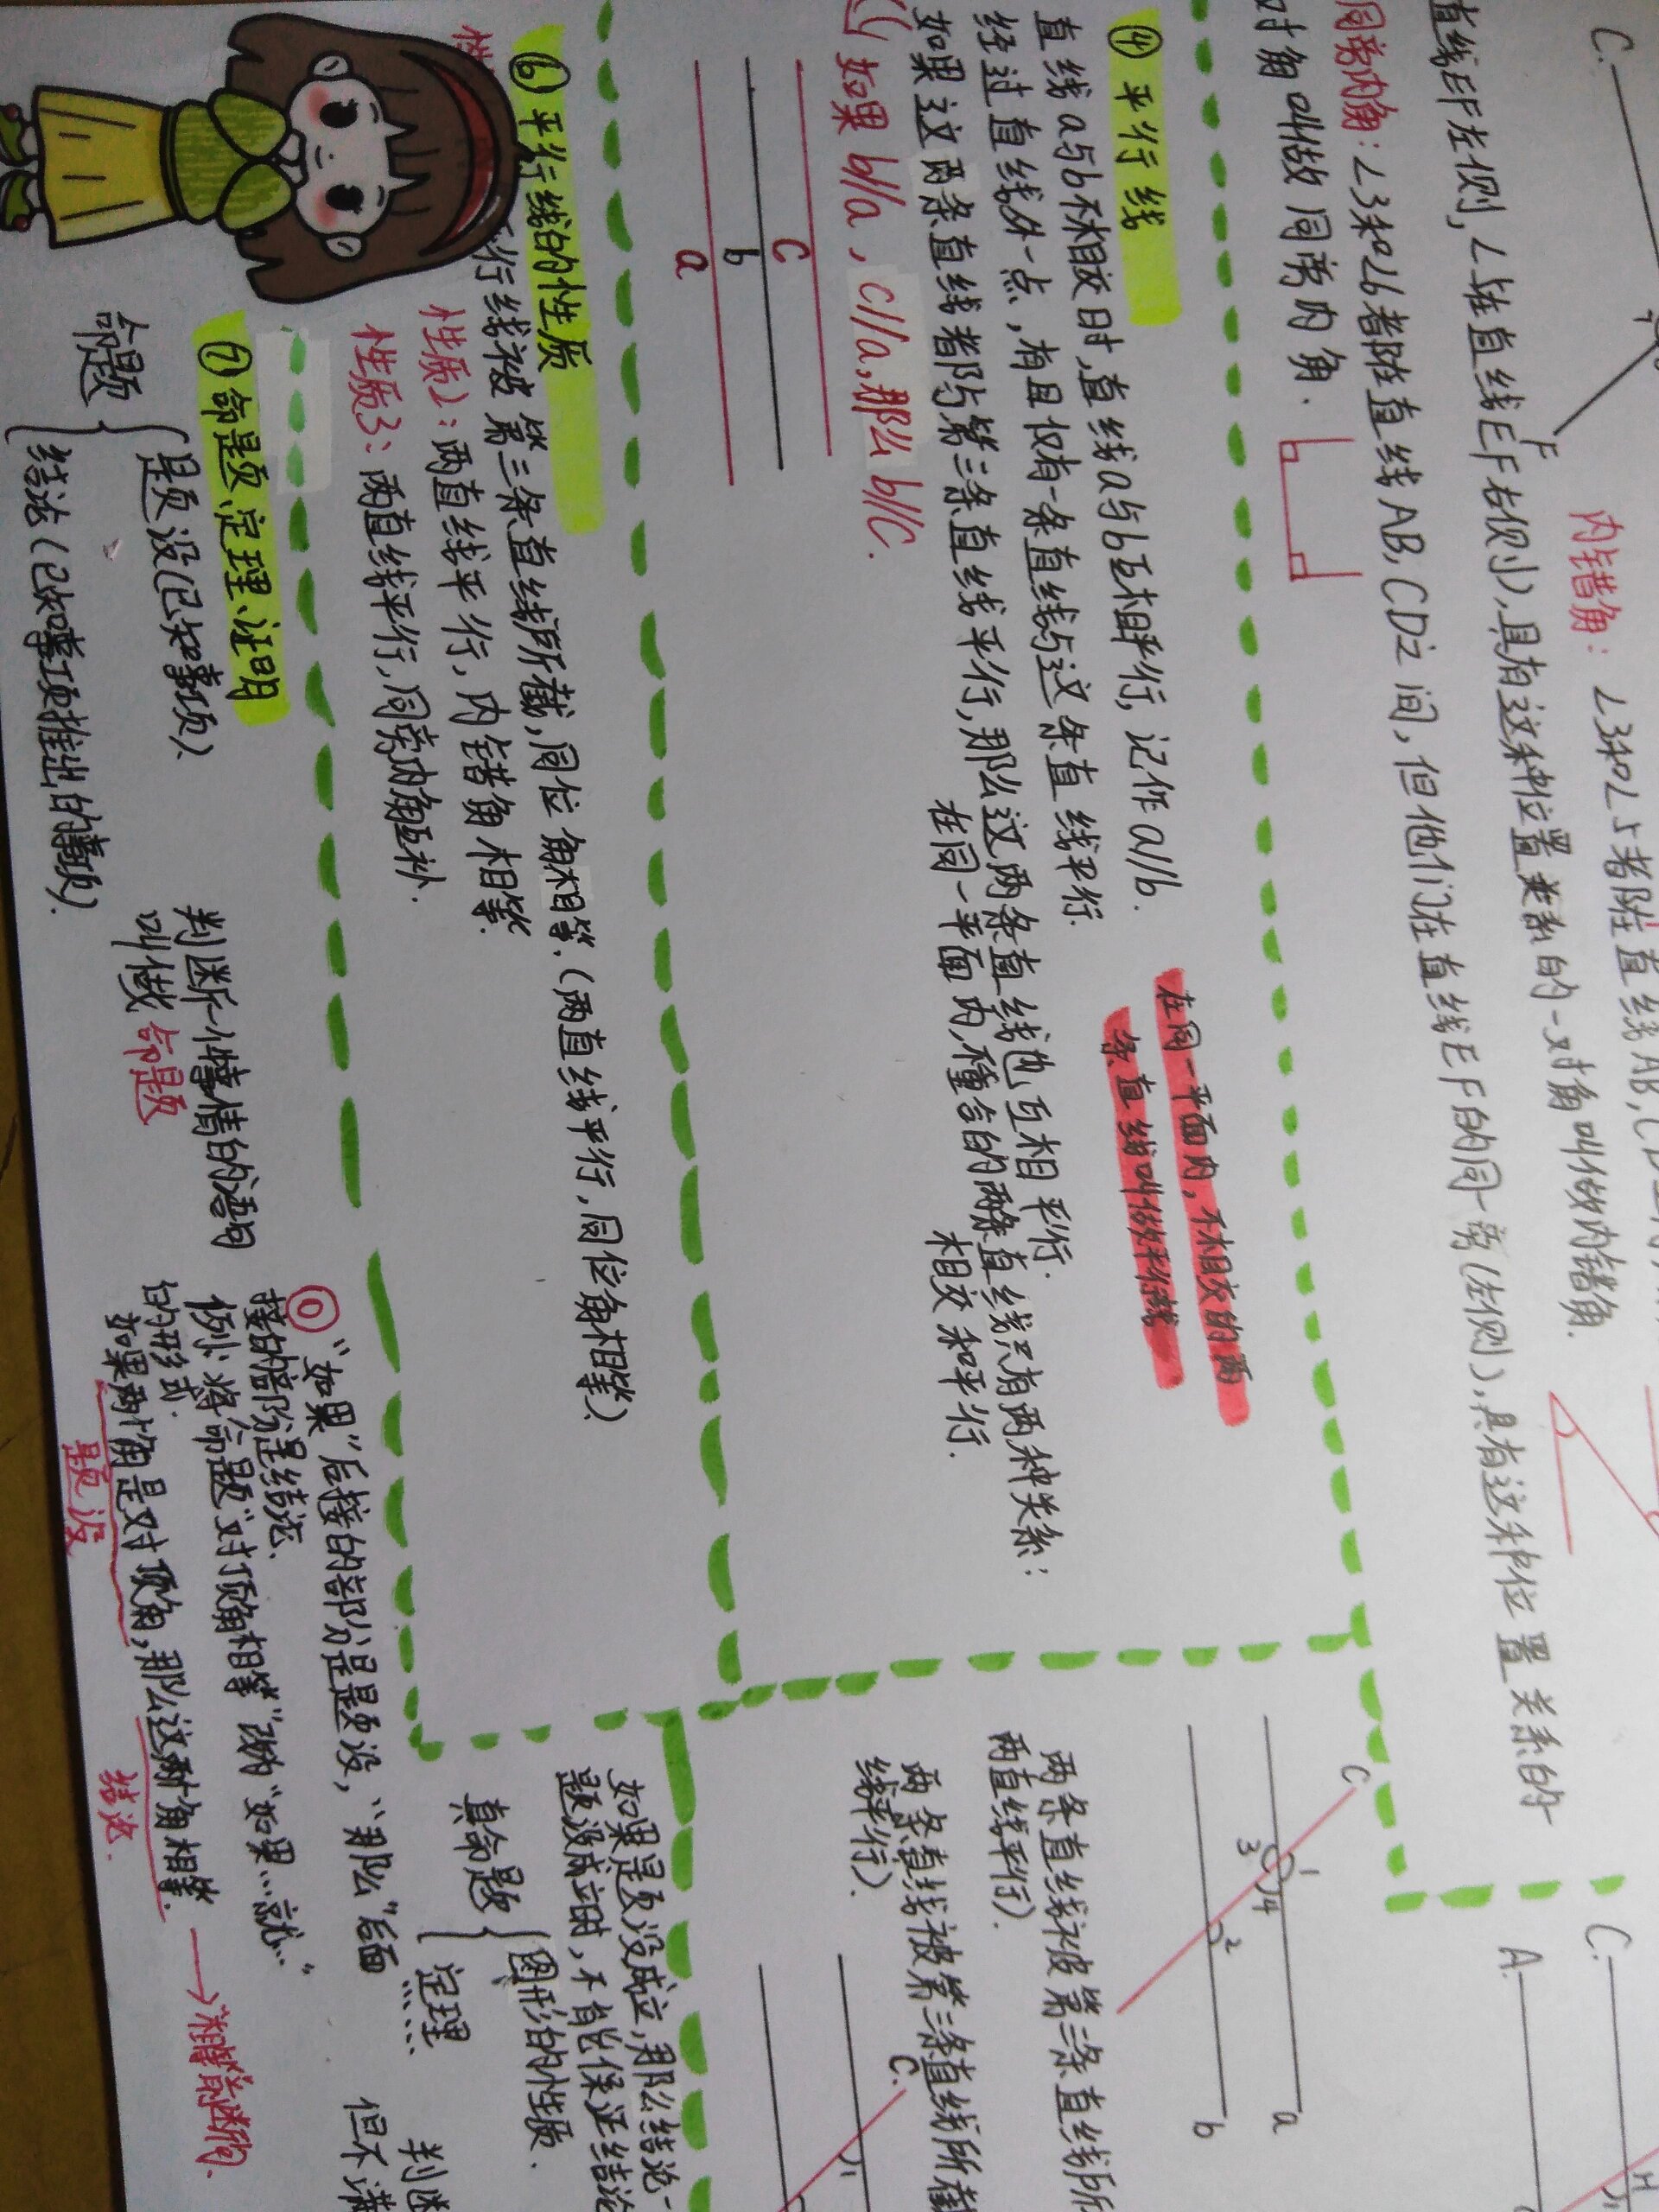 C.
F
内错角：∠3和∠5都在直线AB,CD
直线EF左侧，∠5在直线EF右侧），具有这种位置关系的一对角叫做内错角.
同旁内角：∠3和∠6都在直线AB,CD之间，但他们在直线EF的同一旁（左侧），具有这种位置关系的
对角叫做同旁内角.
④ 平行线
在同一平面内，不相交的两
条直线叫做平行线
直线a与b不相交时，直线a与b互相平行，记作a//b.
经过直线外一点，有且仅有一条直线与这条直线平行.
如果这两条直线都与第三条直线平行，那么这两条直线也互相平行.
在同一平面内，不重合的两条直线只有两种关系：
相交和平行.
如果b//a，c//a，那么b//C.
C
b
a
⑥ 平行线的性质
行线被第三条直线所截，同位角相等.（两直线平行，同位角相等）
性质2：两直线平行，内错角相等.
性质3：两直线平行，同旁内角互补.
⑦ 命题、定理、证明
命题
题没（已知事项）、
结论（已知事项推出的事项）.
判断一件事情的语句
叫做命题
“如果”后接的部分是题没，“那么”后面
接的部分是结论.
例：将命题“对顶角相等”改为“如果…就…”
的形式.
如果两个角是对顶角，那么这两个角相等.
题没
结论.
C
1
3
4
2
a
b
两条直线被第三条直线所
两直线平行）.
两条直线被第三条直线所截
线平行）.
C.
1
如果题没成立，那么结论一
题没成立时，不能保证结论
真命题
图形的性质.
定理
……
判断
但不满
C.
A.
H